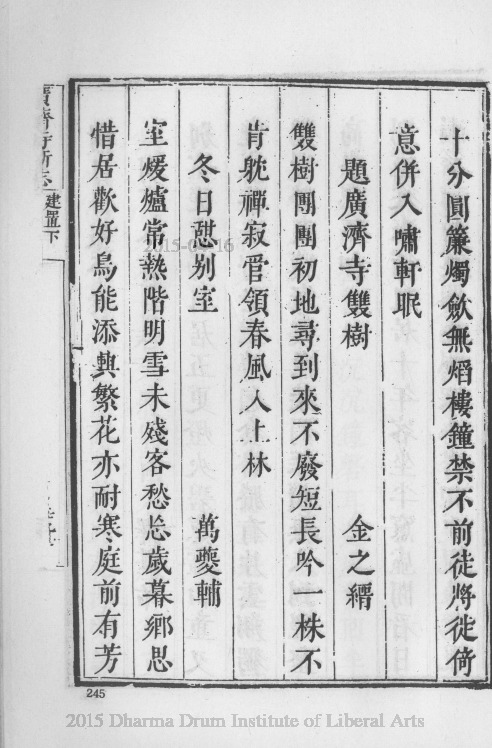 十分圓簾燭斂無熖樓鐘禁不前徒將徙倚
意併入嘯軒眠
題廣濟寺雙樹 金之縉
雙樹團團初地尋到來不廢短長吟一株不
肯躭禪寂管領春風入上林
冬日憇别室 萬夔輔
室煖爐常熱階明雪未殘客愁忘歲暮鄉思
惜居歡好鳥能添興繁花亦耐寒庭前有芳
廣濟寺新志 建置下
245
2015 Dharma Drum Institute of Liberal Arts